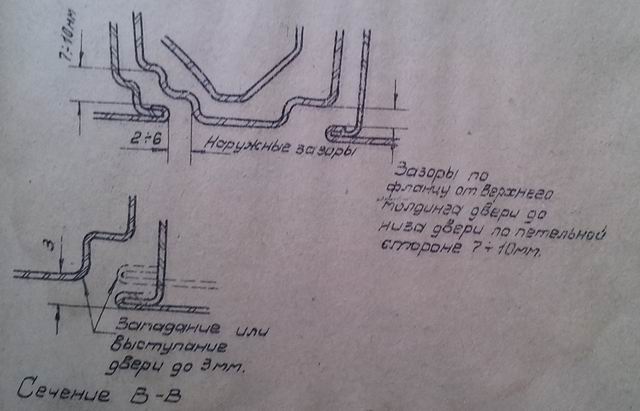 7÷10мм
2÷6
Наружные зазоры
Зазоры по
фланцу от верхнего
молдинга двери до
низа двери по петельной
стороне 7÷10мм.
3
Западание или
выступание
двери до 3мм.
Сечение В-В